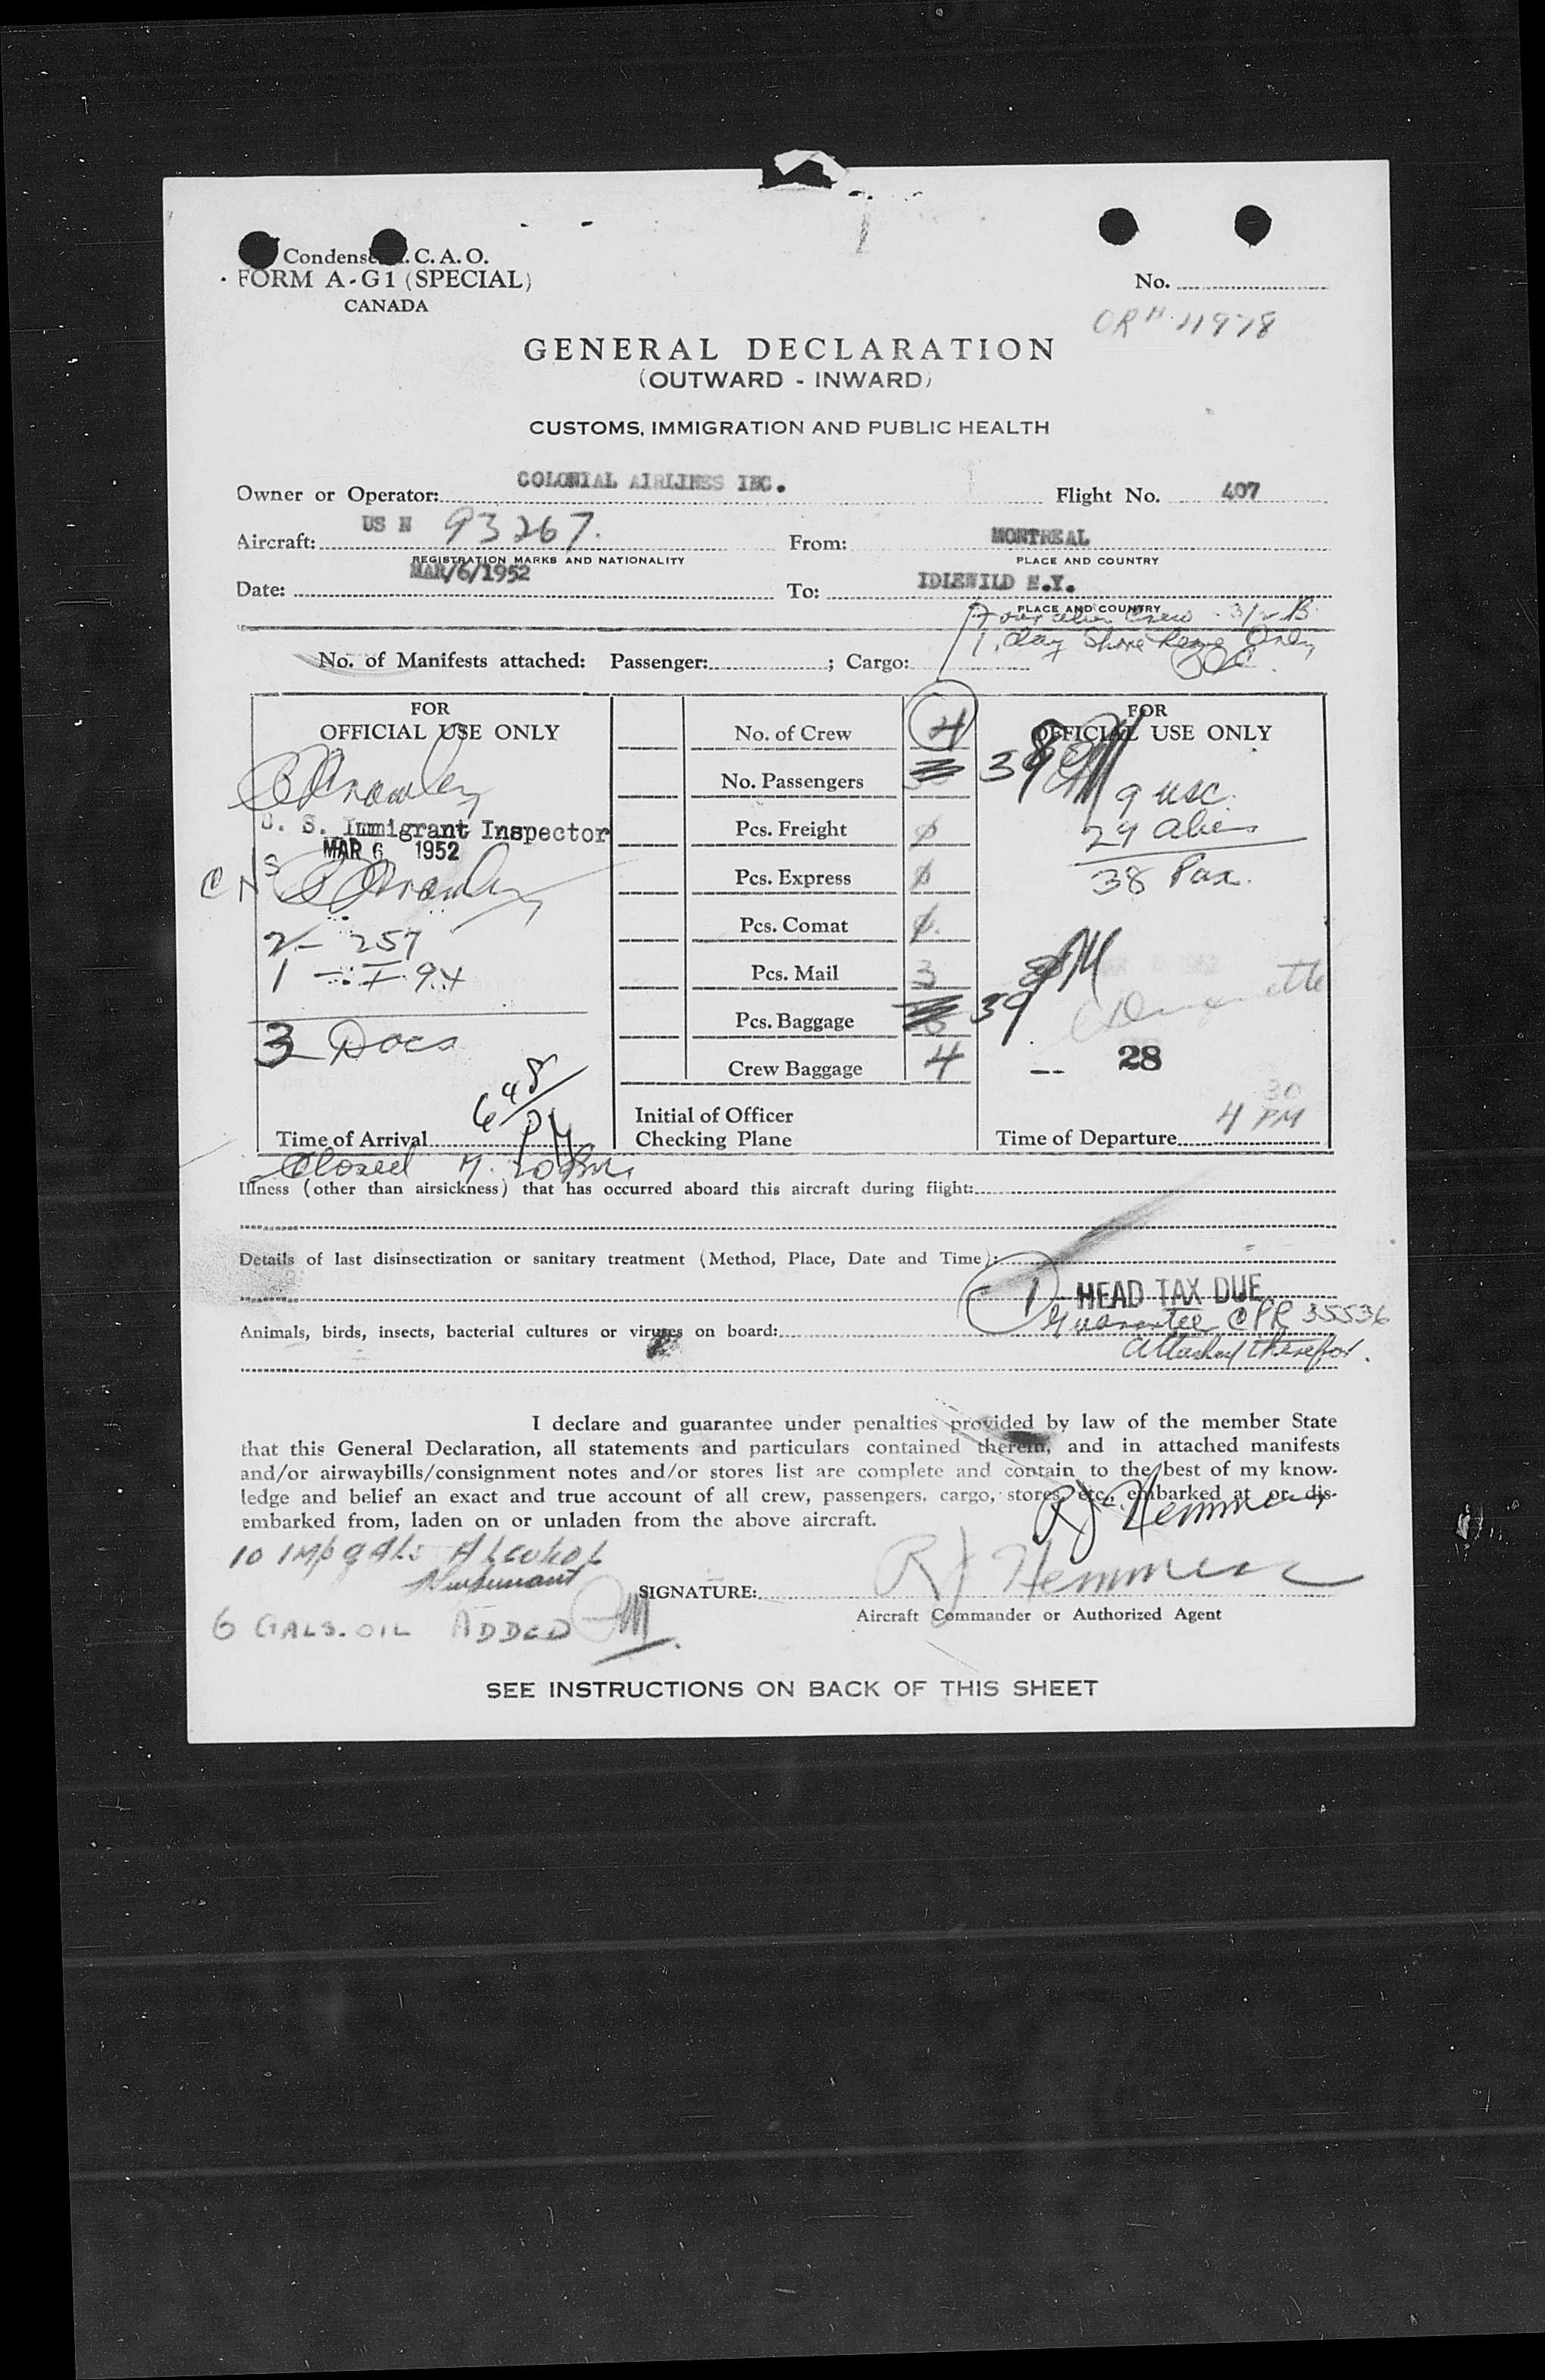 Condensed I.C.A.O.
FORM A-G1 (SPECIAL)
CANADA
No.
11978
GENERAL DECLARATION
(OUTWARD - INWARD)
CUSTOMS, IMMIGRATION AND PUBLIC HEALTH
Owner or Operator: COLONIAL AIRLINES INC. Flight No. 407
Aircraft: US N 93267. From: MONTREAL
REGISTRATION MARKS AND NATIONALITY PLACE AND COUNTRY
Date: MAR/6/1952 To: IDLEWILD N.Y.
PLACE AND COUNTRY
Four alien Crew
1 day Shore Leave Only
No. of Manifests attached: Passenger: ; Cargo:
FOR
OFFICIAL USE ONLY
U. S. Immigrant Inspector
MAR 6 1952
2 - 257
1 - I 94
3 Docs
6 48/PM
Time of Arrival
Closed
No. of Crew 4
No. Passengers 38
Pcs. Freight ø
Pcs. Express ø
Pcs. Comat ø
Pcs. Mail 3
Pcs. Baggage 39
Crew Baggage 4
Initial of Officer
Checking Plane
FOR
OFFICIAL USE ONLY
9 USC.
29 Alien
38 Pax.
28
4 30 PM
Time of Departure
Illness (other than airsickness) that has occurred aboard this aircraft during flight:
Details of last disinsectization or sanitary treatment (Method, Place, Date and Time):
1 HEAD TAX DUE
Guarantee CPR 35536
Animals, birds, insects, bacterial cultures or viruses on board:
Attached therefor.
I declare and guarantee under penalties provided by law of the member State
that this General Declaration, all statements and particulars contained therein, and in attached manifests
and/or airwaybills/consignment notes and/or stores list are complete and contain to the best of my know-
ledge and belief an exact and true account of all crew, passengers, cargo, stores, etc., embarked at or dis-
embarked from, laden on or unladen from the above aircraft.
R J Hemmerx
10 IMP GALS ALCOHOL
SIGNATURE:
6 GALS. OIL ADDED
Aircraft Commander or Authorized Agent
SEE INSTRUCTIONS ON BACK OF THIS SHEET